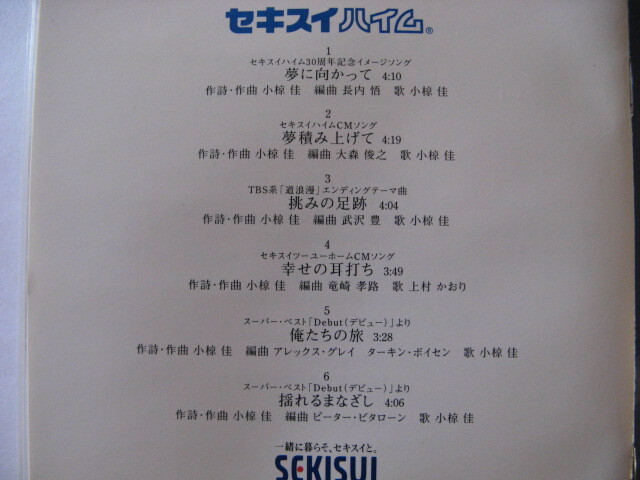 セキスイハイム®
1
セキスイハイム30周年記念イメージソング
夢に向かって 4:10
作詩・作曲 小椋 佳 編曲 長内 悟 歌 小椋 佳
2
セキスイハイムCMソング
夢積み上げて 4:19
作詩・作曲 小椋 佳 編曲 大森 俊之 歌 小椋 佳
3
TBS系「道浪漫」エンディングテーマ曲
挑みの足跡 4:04
作詩・作曲 小椋 佳 編曲 武沢 豊 歌 小椋 佳
4
セキスイツーユーホームCMソング
幸せの耳打ち 3:49
作詩・作曲 小椋 佳 編曲 竜崎 孝路 歌 上村 かおり
5
スーパー・ベスト「Debut(デビュー)」より
俺たちの旅 3:28
作詩・作曲 小椋 佳 編曲 アレックス・グレイ ターキン・ボイセン 歌 小椋 佳
6
スーパー・ベスト「Debut(デビュー)」より
揺れるまなざし 4:06
作詩・作曲 小椋 佳 編曲 ピーター・ピタローン 歌 小椋 佳
一緒に暮らそ、セキスイと。
SEKISUI